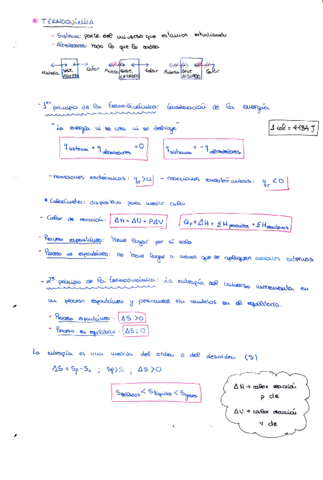 * TERMOQUÍMICA
- Sistema: parte del universo que estamos estudiando
- Alrededores: todo lo que lo rodea
Materia Sist. ABIERTO Calor Materia Sist. CERRADO Calor Materia Sist. AISLADO Calor
- 1er principio de la termodinámica: Conservación de la energía
"La energía ni se crea ni se destruye"
1 cal = 4'184 J
q sistema + q alrededores = 0
q sistema = - q alrededores
- reacciones endotérmicas: qr > 0 - reacciones exotérmicas: qr < 0
* Calorímetro: dispositivo para medir calor
- Calor de reacción: ΔH = ΔU + PΔV Qp = ΔH = ΣH productos - ΣH reactivos
- Proceso espontáneo: tiene lugar por sí solo
- Proceso no espontáneo: no tiene lugar a menos que se apliquen acciones externas
- 2º principio de la termodinámica: La entropía del universo incrementa en
un proceso espontáneo y permanece sin cambios en el equilibrio.
- Proceso espontáneo: ΔS > 0
- Proceso en equilibrio: ΔS = 0
La entropía es una medida del orden o del desorden (S)
ΔS = Sf - Si ; Sf > Si ; ΔS > 0
S sólidos < S líquidos < S gases
ΔH → calor reacción
p cte
ΔU → calor reacción
V cte